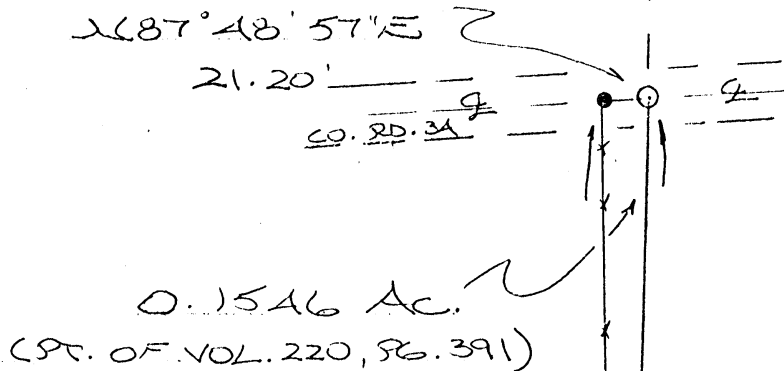 N87°48'57"E
21.20'
℄ ℄
CO. RD. 34
0.1546 AC.
(PT. OF VOL. 220, PG. 391)